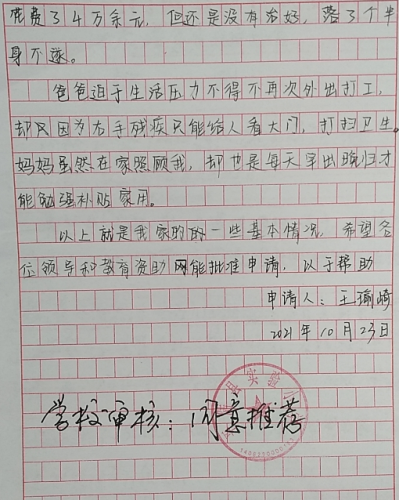 花费了4万余元，但还是没有治好，落了个半
身不遂。
爸爸迫于生活压力不得不再次外出打工，
却又因为右手残疾只能给人看大门，打扫卫生。
妈妈虽然在家照顾我，却也是每天早出晚归才
能勉强补贴家用。
以上就是我家的一些基本情况，希望各
位领导和教育资助网能批准申请，以于帮助
申请人：王瑜崎
2021年10月23日
县实验小
学校审核：同意推荐